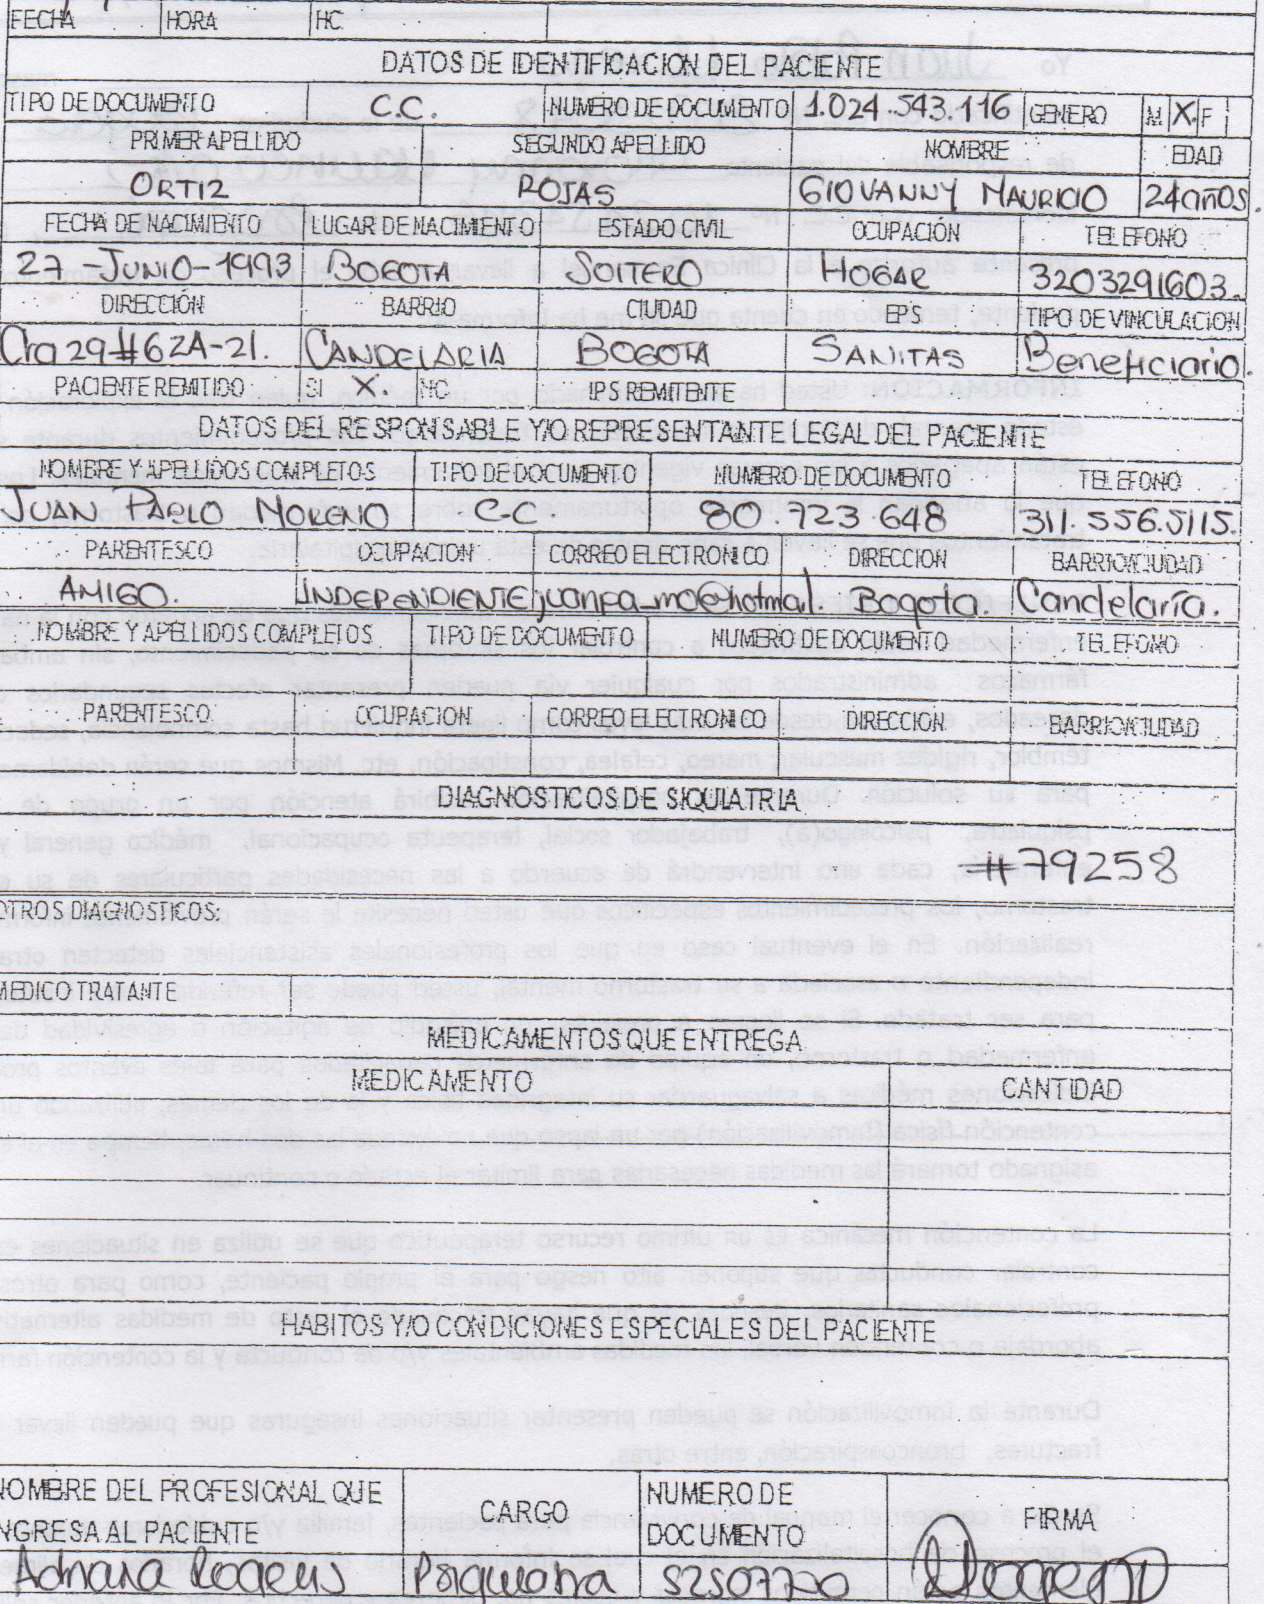 FECHA HORA HC
DATOS DE IDENTIFICACION DEL PACIENTE
TIPO DE DOCUMENTO C.C. NUMERO DE DOCUMENTO 1.024.543.116 GENERO M X F
PRIMER APELLIDO SEGUNDO APELLIDO NOMBRE EDAD
ORTIZ ROJAS GIOVANNY MAURICIO 24 años.
FECHA DE NACIMIENTO LUGAR DE NACIMIENTO ESTADO CIVIL OCUPACION TELEFONO
27-JUNIO-1993 BOGOTA SOLTERO HOGAR 3203291603.
DIRECCIÓN BARRIO CIUDAD EPS TIPO DE VINCULACION
Cra 29 #62A-21. CANDELARIA BOGOTA SANITAS Beneficiario.
PACIENTE REMITIDO SI X NO IPS REMITENTE
DATOS DEL RESPONSABLE Y/O REPRESENTANTE LEGAL DEL PACIENTE
NOMBRE Y APELLIDOS COMPLETOS TIPO DE DOCUMENTO NUMERO DE DOCUMENTO TELEFONO
JUAN PABLO MORENO C.C. 80.723.648 311.556.5115.
PARENTESCO OCUPACION CORREO ELECTRONICO DIRECCION BARRIO/CIUDAD
AMIGO. INDEPENDIENTE juanpa_mo@hotmail. Bogota Candelaria.
NOMBRE Y APELLIDOS COMPLETOS TIPO DE DOCUMENTO NUMERO DE DOCUMENTO TELEFONO
PARENTESCO OCUPACION CORREO ELECTRONICO DIRECCION BARRIO/CIUDAD
DIAGNOSTICOS DE SIQUIATRIA
#79258
OTROS DIAGNOSTICOS:
MEDICO TRATANTE
MEDICAMENTOS QUE ENTREGA
MEDICAMENTO CANTIDAD
HABITOS Y/O CONDICIONES ESPECIALES DEL PACIENTE
NOMBRE DEL PROFESIONAL QUE INGRESA AL PACIENTE CARGO NUMERO DE DOCUMENTO FIRMA
Adriana Psiquiatra 52507720